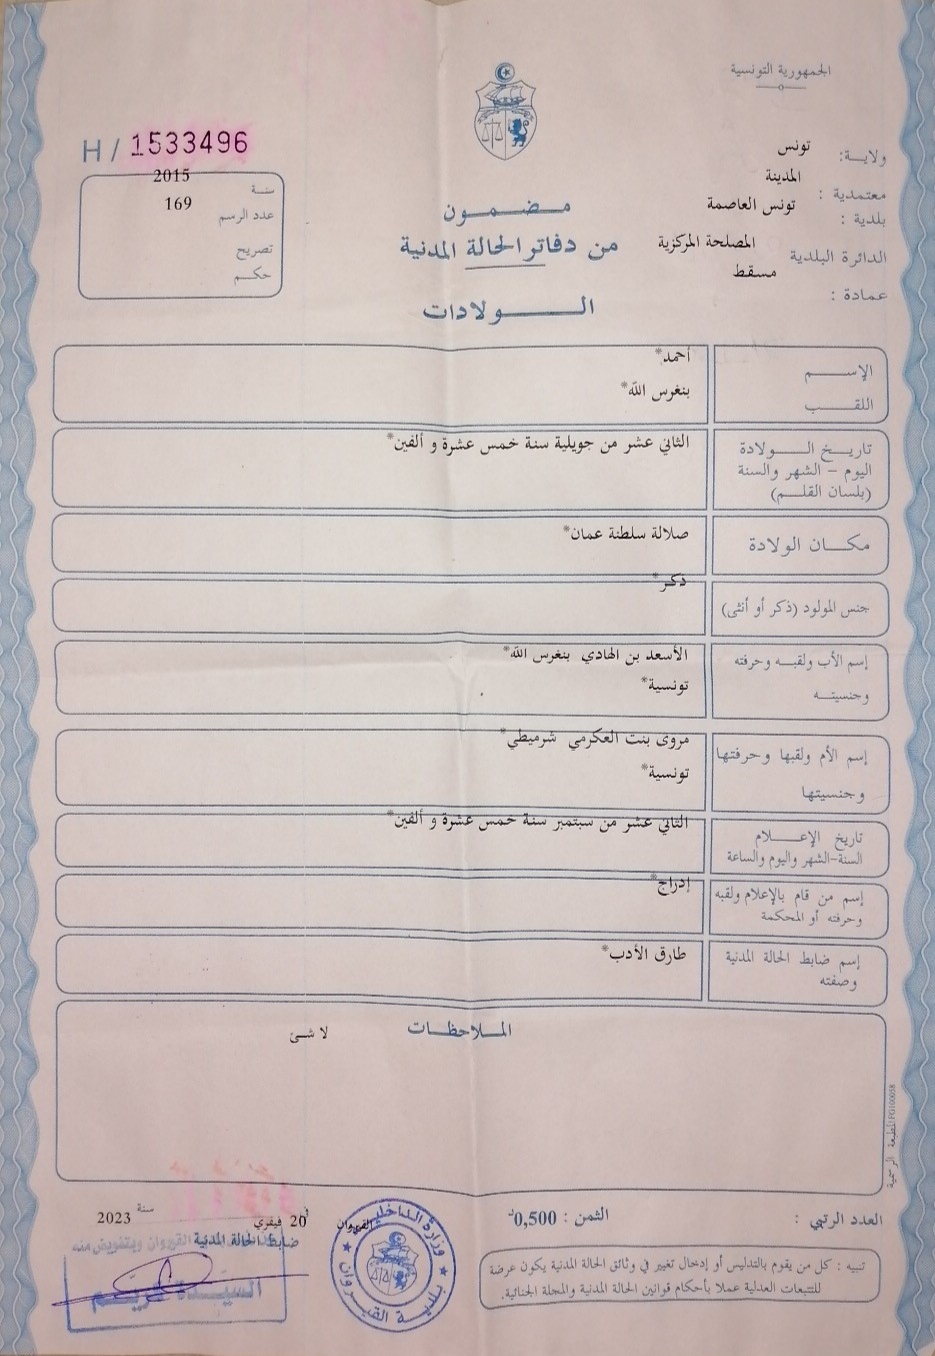 الجمهورية التونسية
H / 1533496
ولاية: تونس
معتمدية : المدينة
بلدية : تونس العاصمة
الدائرة البلدية المصلحة المركزية
عمادة : مسقط
سنة 2015
عدد الرسم 169
تصريح
حكم
مضمون
من دفاتر الحالة المدنية
الولادات
الإسم أحمد*
اللقب بنغرس الله*
تاريخ الولادة
اليوم - الشهر والسنة
(بلسان القلم)
الثاني عشر من جويلية سنة خمس عشرة و ألفين*
مكان الولادة صلالة سلطنة عمان*
جنس المولود (ذكر أو أنثى) ذكر*
إسم الأب ولقبه وحرفته
وجنسيته
الأسعد بن الهادي بنغرس الله*
تونسية*
إسم الأم ولقبها وحرفتها
وجنسيتها
مروى بنت العكرمي شرميطي*
تونسية*
تاريخ الإعلام
السنة-الشهر واليوم والساعة
الثاني عشر من سبتمبر سنة خمس عشرة و ألفين*
إسم من قام بالإعلام ولقبه
وحرفته أو المحكمة
إدراج*
إسم ضابط الحالة المدنية
وصفته
طارق الأدب*
الملاحظات
لا شئ
المطبعة الرسمية FG100058
العدد الرتبي :
الثمن : 0,500د
القيروان 20 فيفري سنة 2023
ضابط الحالة المدنية
القيروان وبتفويض منه
السيدة
وزارة الداخلية
بلدية القيروان
تنبيه : كل من يقوم بالتدليس أو إدخال تغيير في وثائق الحالة المدنية يكون عرضة
للتتبعات العدلية عملا بأحكام قوانين الحالة المدنية والمجلة الجنائية.